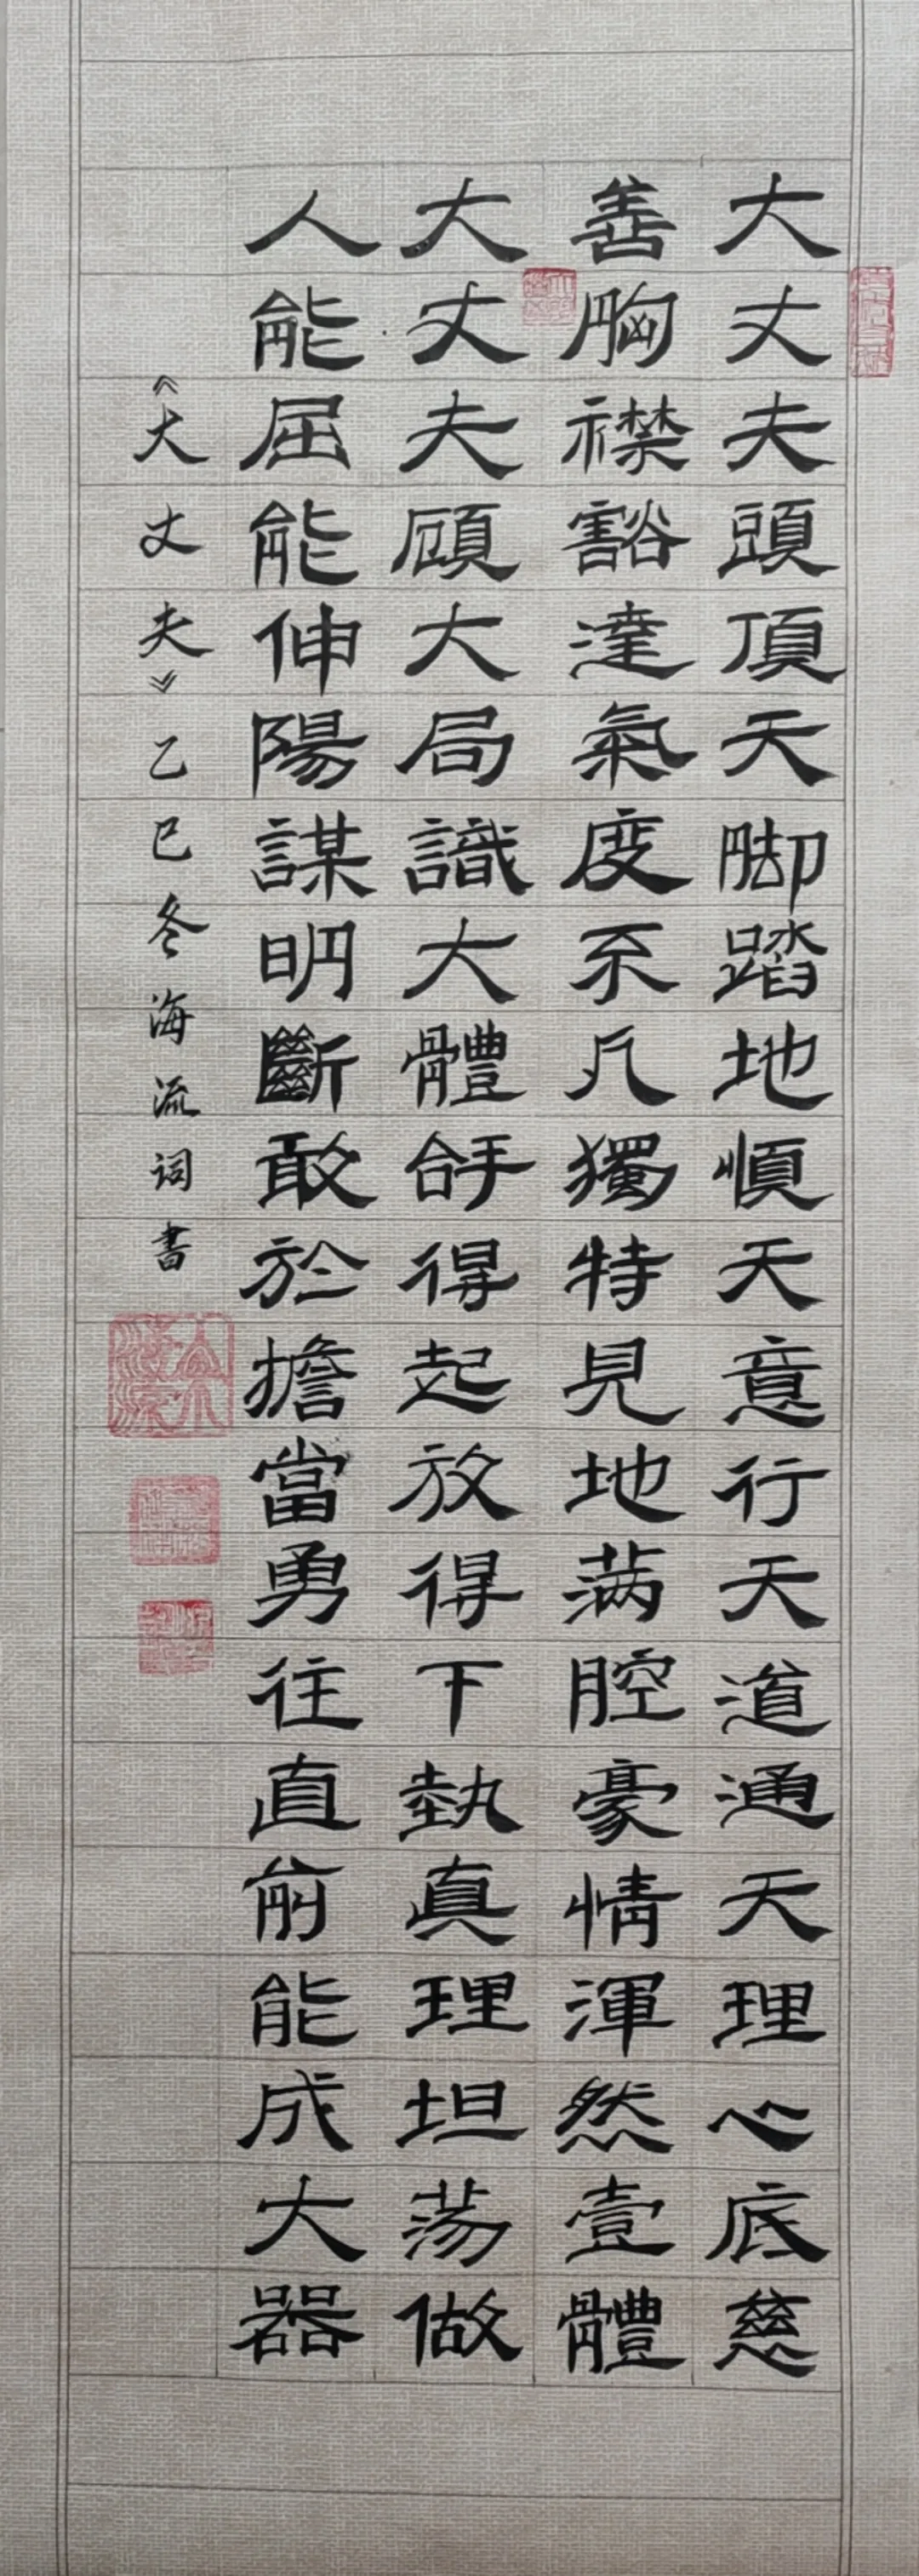 大丈夫頭頂天脚踏地順天意行天道通天理心底慈
善胸襟豁達氣度不凡獨特見地满腔豪情渾然壹體
大丈夫顧大局識大體拿得起放得下執真理坦荡做
人能屈能伸陽謀明斷敢於擔當勇往直前能成大器
《大丈夫》乙巳冬海流詞書